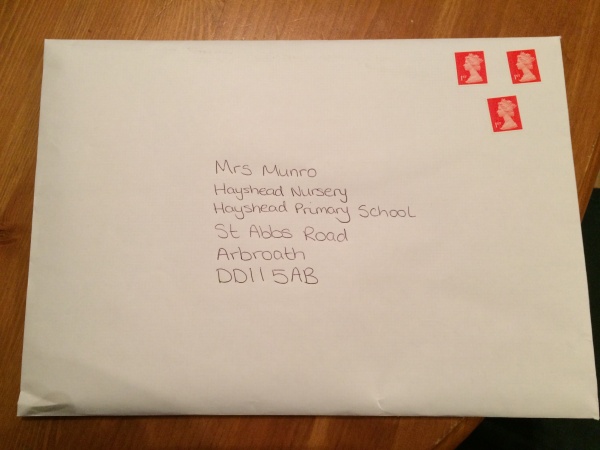 Mrs Munro
Hayshead Nursery
Hayshead Primary School
St Abbs Road
Arbroath
DD11 5AB
1ST
1ST
1ST